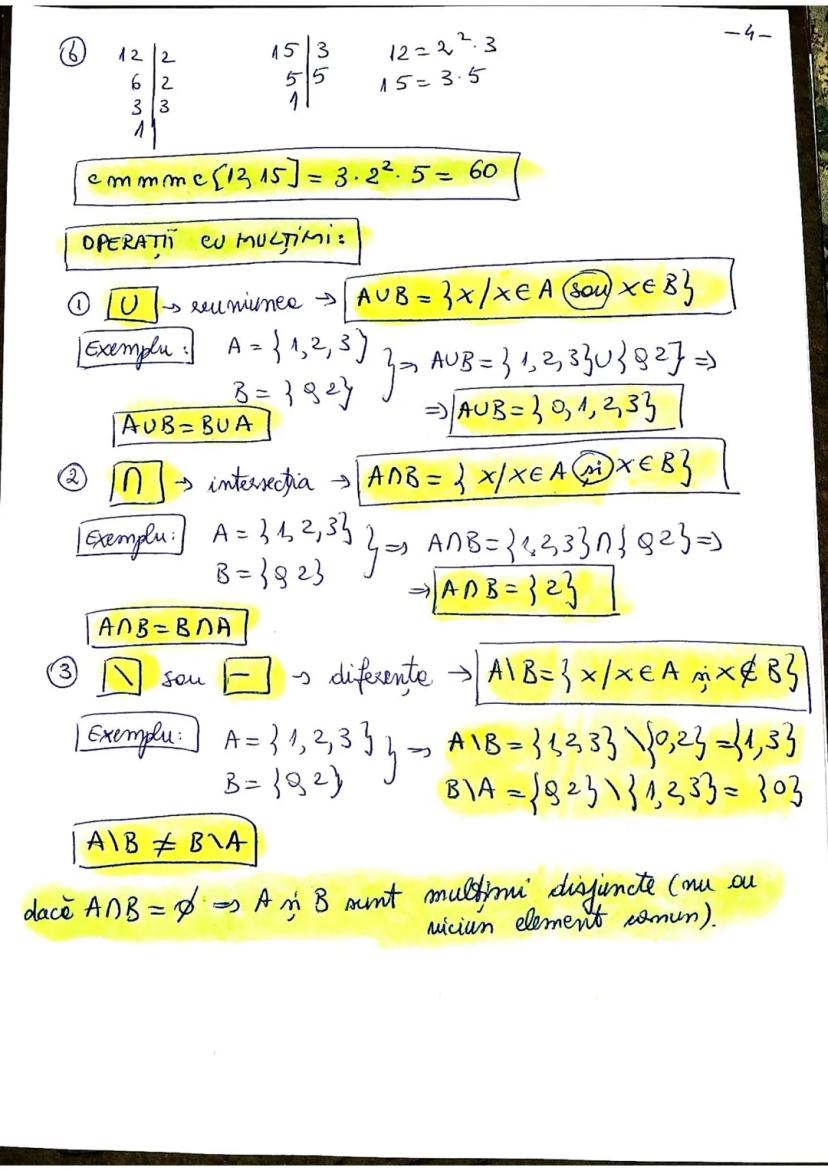 -4-
⑥ 12 | 2   15 | 3   12 = 2² · 3
6 | 2   5 | 5   15 = 3 · 5
3 | 3   1 |
1 |
cmmmc [12, 15] = 3 · 2² · 5 = 60
OPERAȚII CU MULȚIMI:
① ∪ → reuniunea → A∪B = {x / x ∈ A sau x ∈ B}
Exemplu: A = {1, 2, 3}
B = {0, 2} } ⇒ A∪B = {1, 2, 3} ∪ {0, 2} ⇒
A∪B = B∪A ⇒ A∪B = {0, 1, 2, 3}
② ∩ → intersecția → A∩B = {x / x ∈ A și x ∈ B}
Exemplu: A = {1, 2, 3}
B = {0, 2} } ⇒ A∩B = {1, 2, 3} ∩ {0, 2} ⇒
⇒ A∩B = {2}
A∩B = B∩A
③ \ sau − → diferența → A\B = {x / x ∈ A și x ∉ B}
Exemplu: A = {1, 2, 3} } ⇒ A\B = {1, 2, 3} \ {0, 2} = {1, 3}
B = {0, 2} B\A = {0, 2} \ {1, 2, 3} = {0}
A\B ≠ B\A
dacă A∩B = ∅ ⇒ A și B sunt mulțimi disjuncte (nu au
niciun element comun).